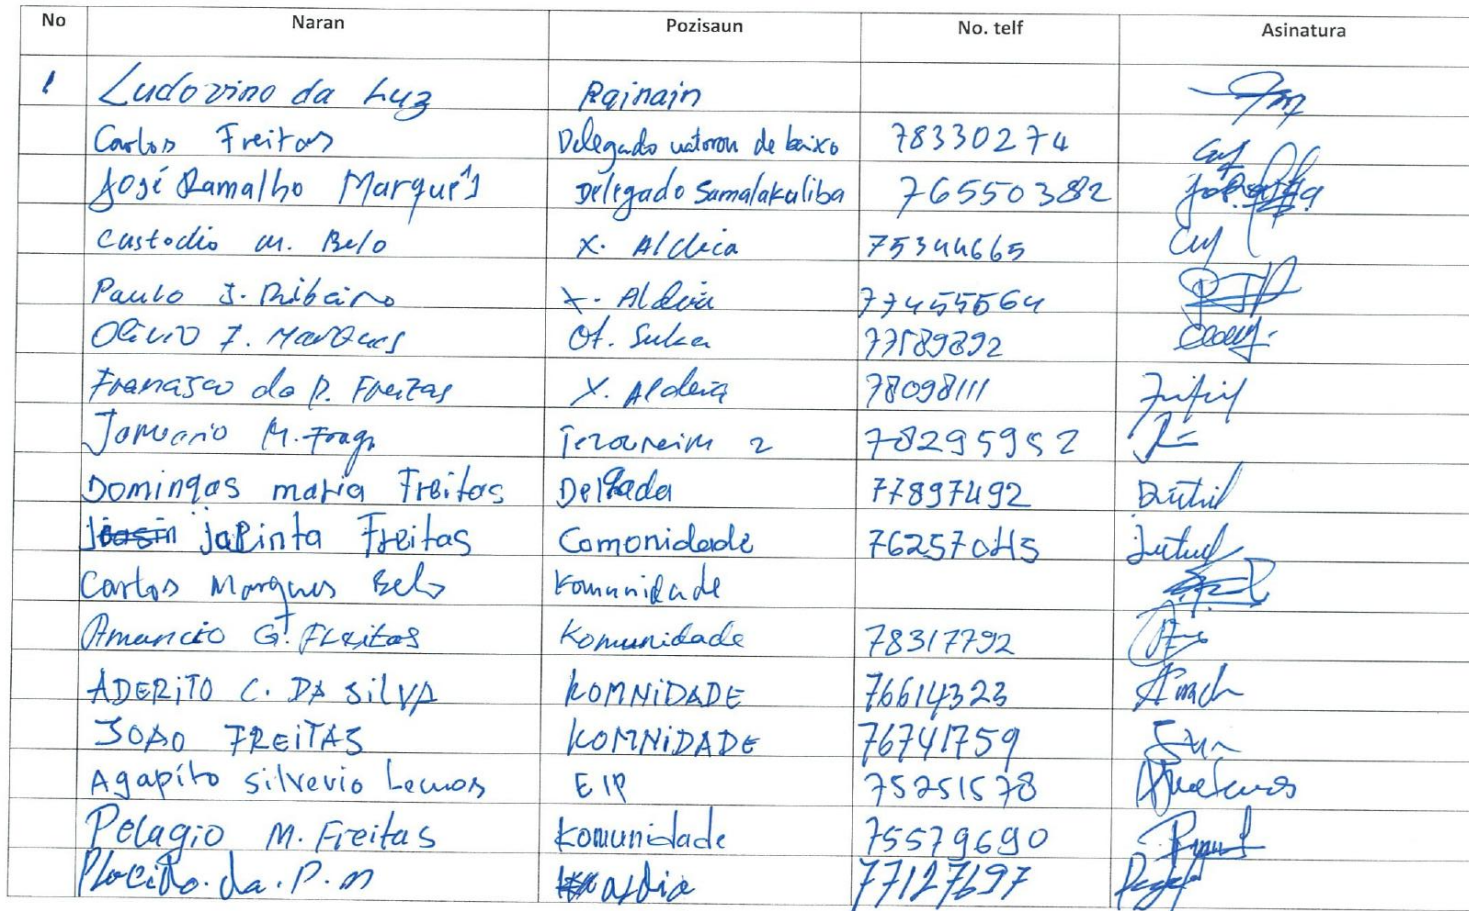 No Naran Pozisaun No. telf Asinatura
1 Ludovino da Luz Rainain
Carlos Freitas Delegado watoron de baixo 78330274
José Ramalho Marques Delegado Samalakuliba 76550382
Custodio M. Belo X. Aldeia 75344665
Paulo J. Ribeiro X. Aldeia 77455564
Olivio F. Marques Of. Suku 77589892
Francisco da P. Freitas X. Aldeia 78098111
Januario M. 2 78295952
Domingas maria Freitas Delegada 77897492
jasinta Freitas Comonidade 76257045
Carlos Marques Belo Komunidade
Amancio G. Freitas Komunidade 78317792
ADERiTO C. DA SilVA KOMNiDADE 76614323
JOAO FREiTAS KOMNiDADE 76741759
Agapito Silverio Lemos 75251578
Pelagio M. Freitas Komunidade 75579690
da. P. 77127697